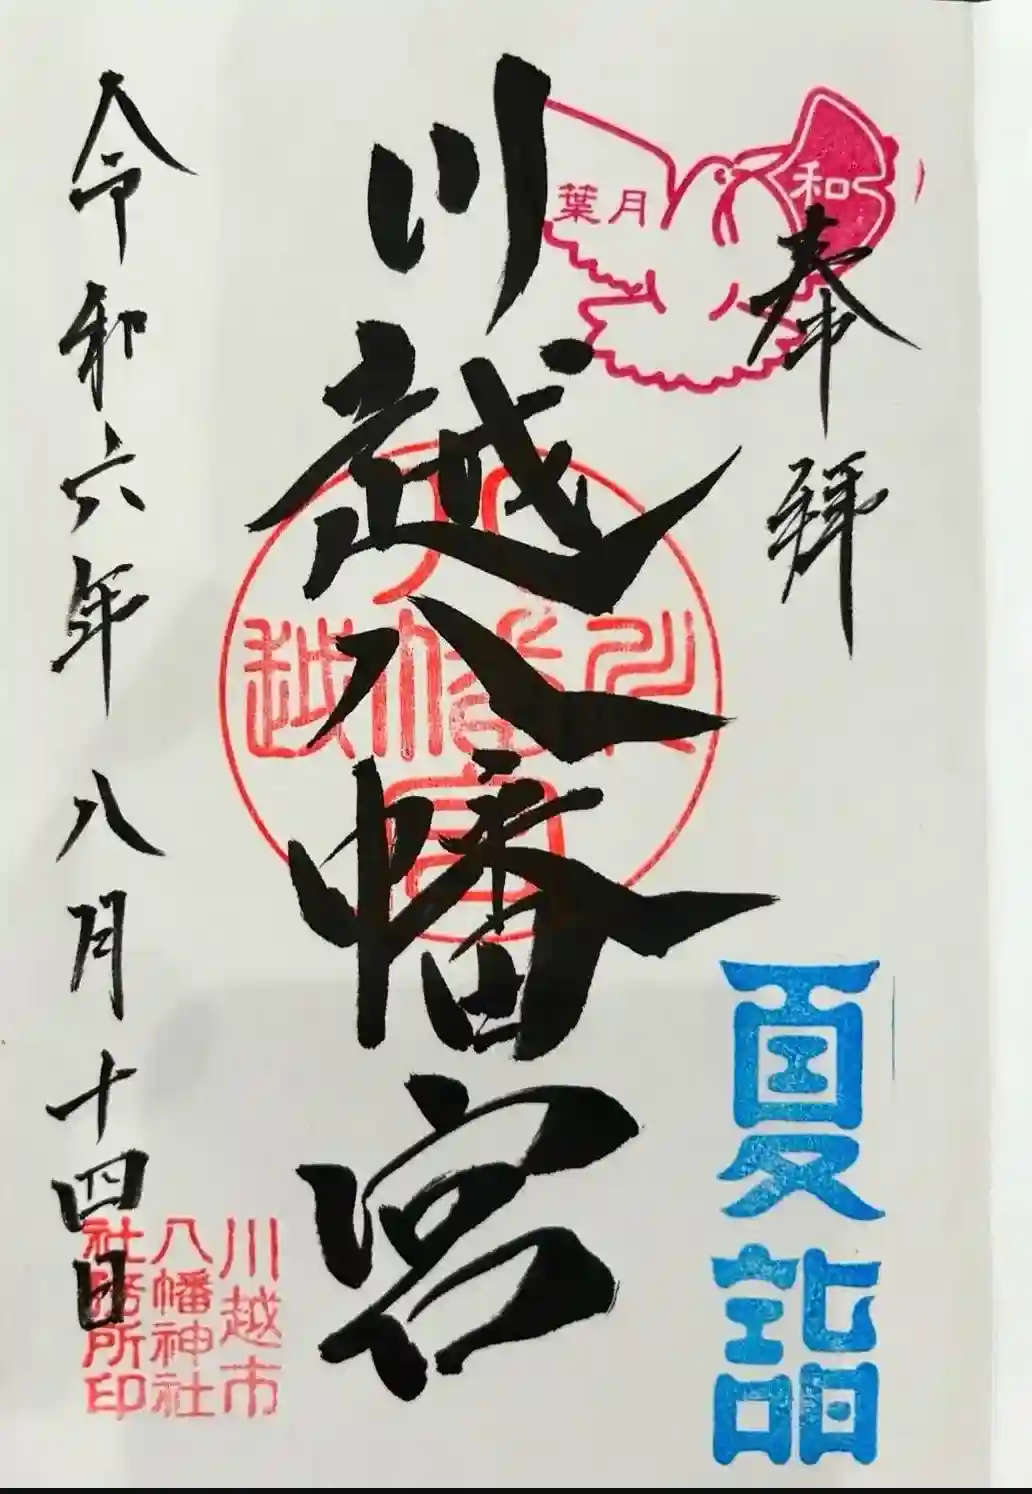 奉拝
和
葉月
夏詣
川越八幡宮
川越
八幡宮
川越市
八幡神社
社務所印
令和六年八月十四日